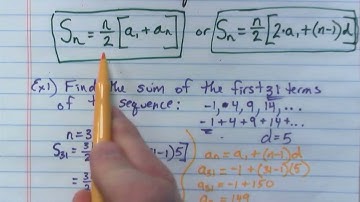 Sₙ = n/2 [a₁ + aₙ] or Sₙ = n/2 [2·a₁ + (n-1)d]
Ex1) Find the sum of the first 31 terms
of the sequence: -1, 4, 9, 14, ...
-1 + 4 + 9 + 14 + ...
n = 3 d = 5
S₃₁ = 3 -1)5] aₙ = a₁ + (n-1)d
a₃₁ = -1 + (31-1)(5)
= 3 a₃₁ = -1 + 150
= 149